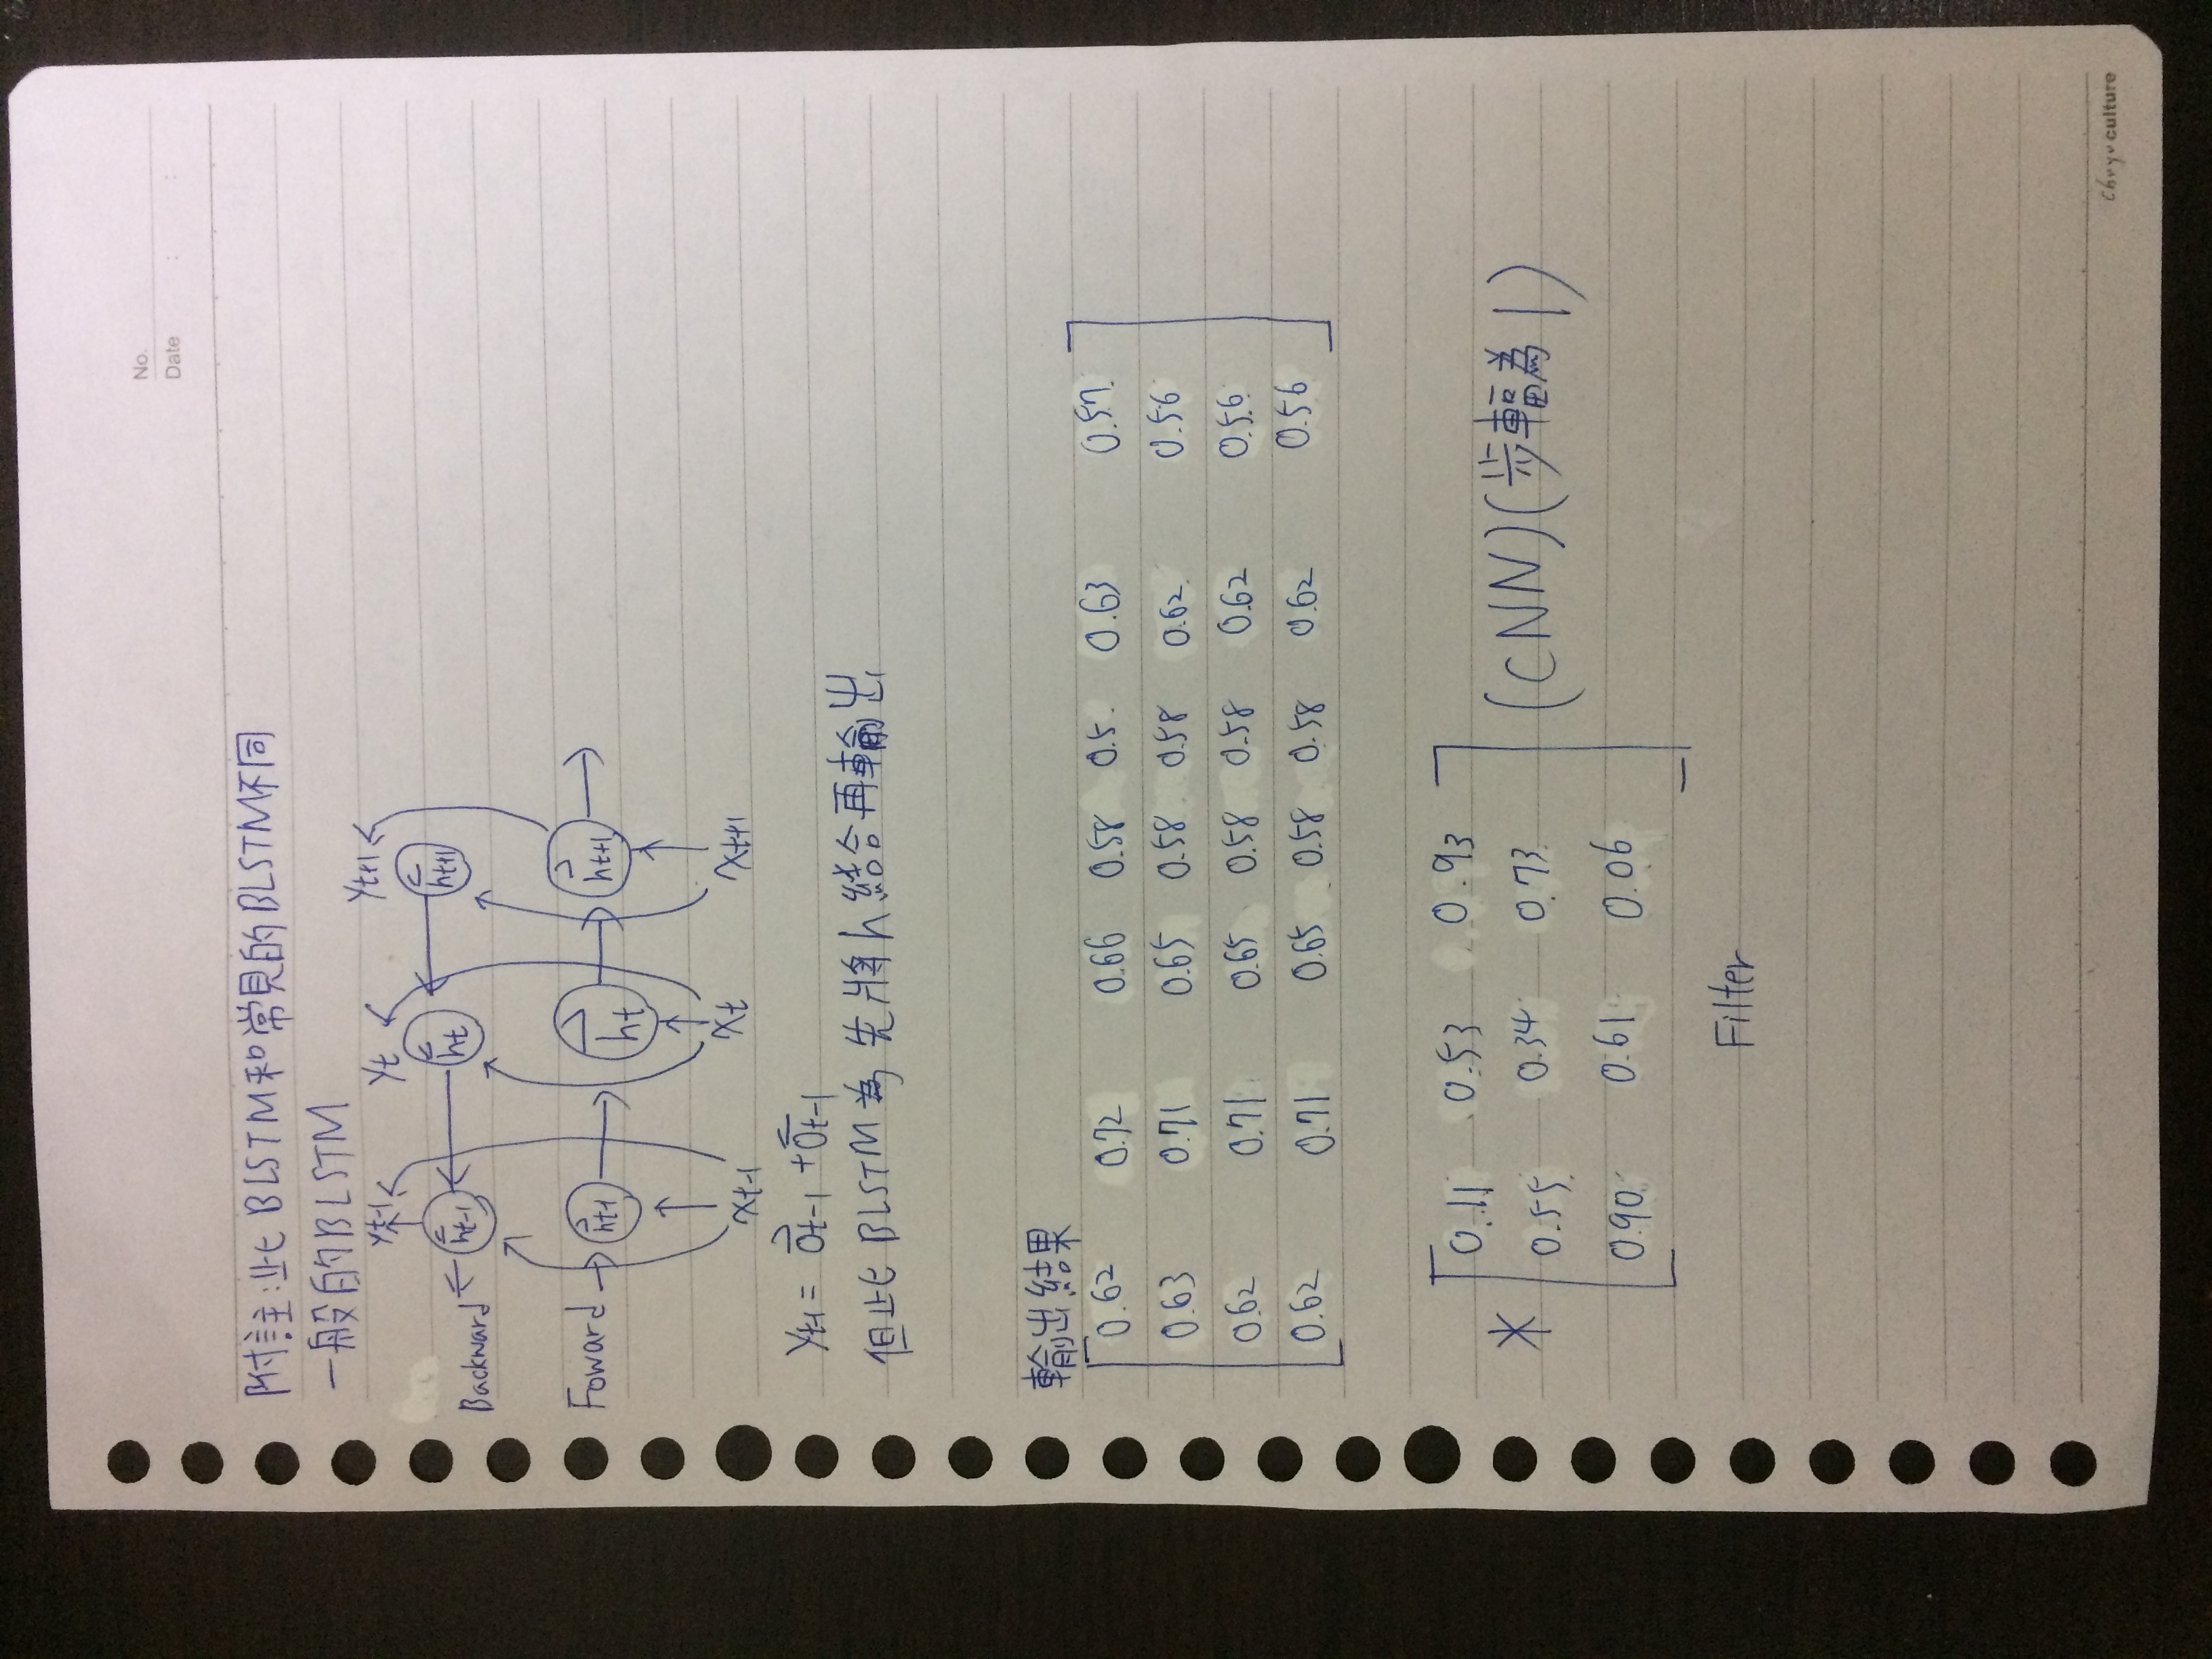 No.
Date : :
附註:此BLSTM和常見的BLSTM不同
一般的BLSTM
yt-1 yt yt+1
Backward ht-1 ht ht+1
Foward ht-1 ht ht+1
xt-1 xt xt+1
yt-1 = Ot-1 + Ot-1
但此BLSTM為先將h結合再輸出
輸出結果
0.62 0.72 0.66 0.58 0.5. 0.63 0.57
0.63 0.71 0.65 0.58 0.58 0.62 0.56
0.62 0.71 0.65 0.58 0.58 0.62 0.56
0.62 0.71 0.65 0.58 0.58 0.62 0.56
0.11 0.53 0.93
* 0.55 0.34 0.73 (CNN)(步輻為1)
0.90 0.61 0.06
Filter
Chuyu culture